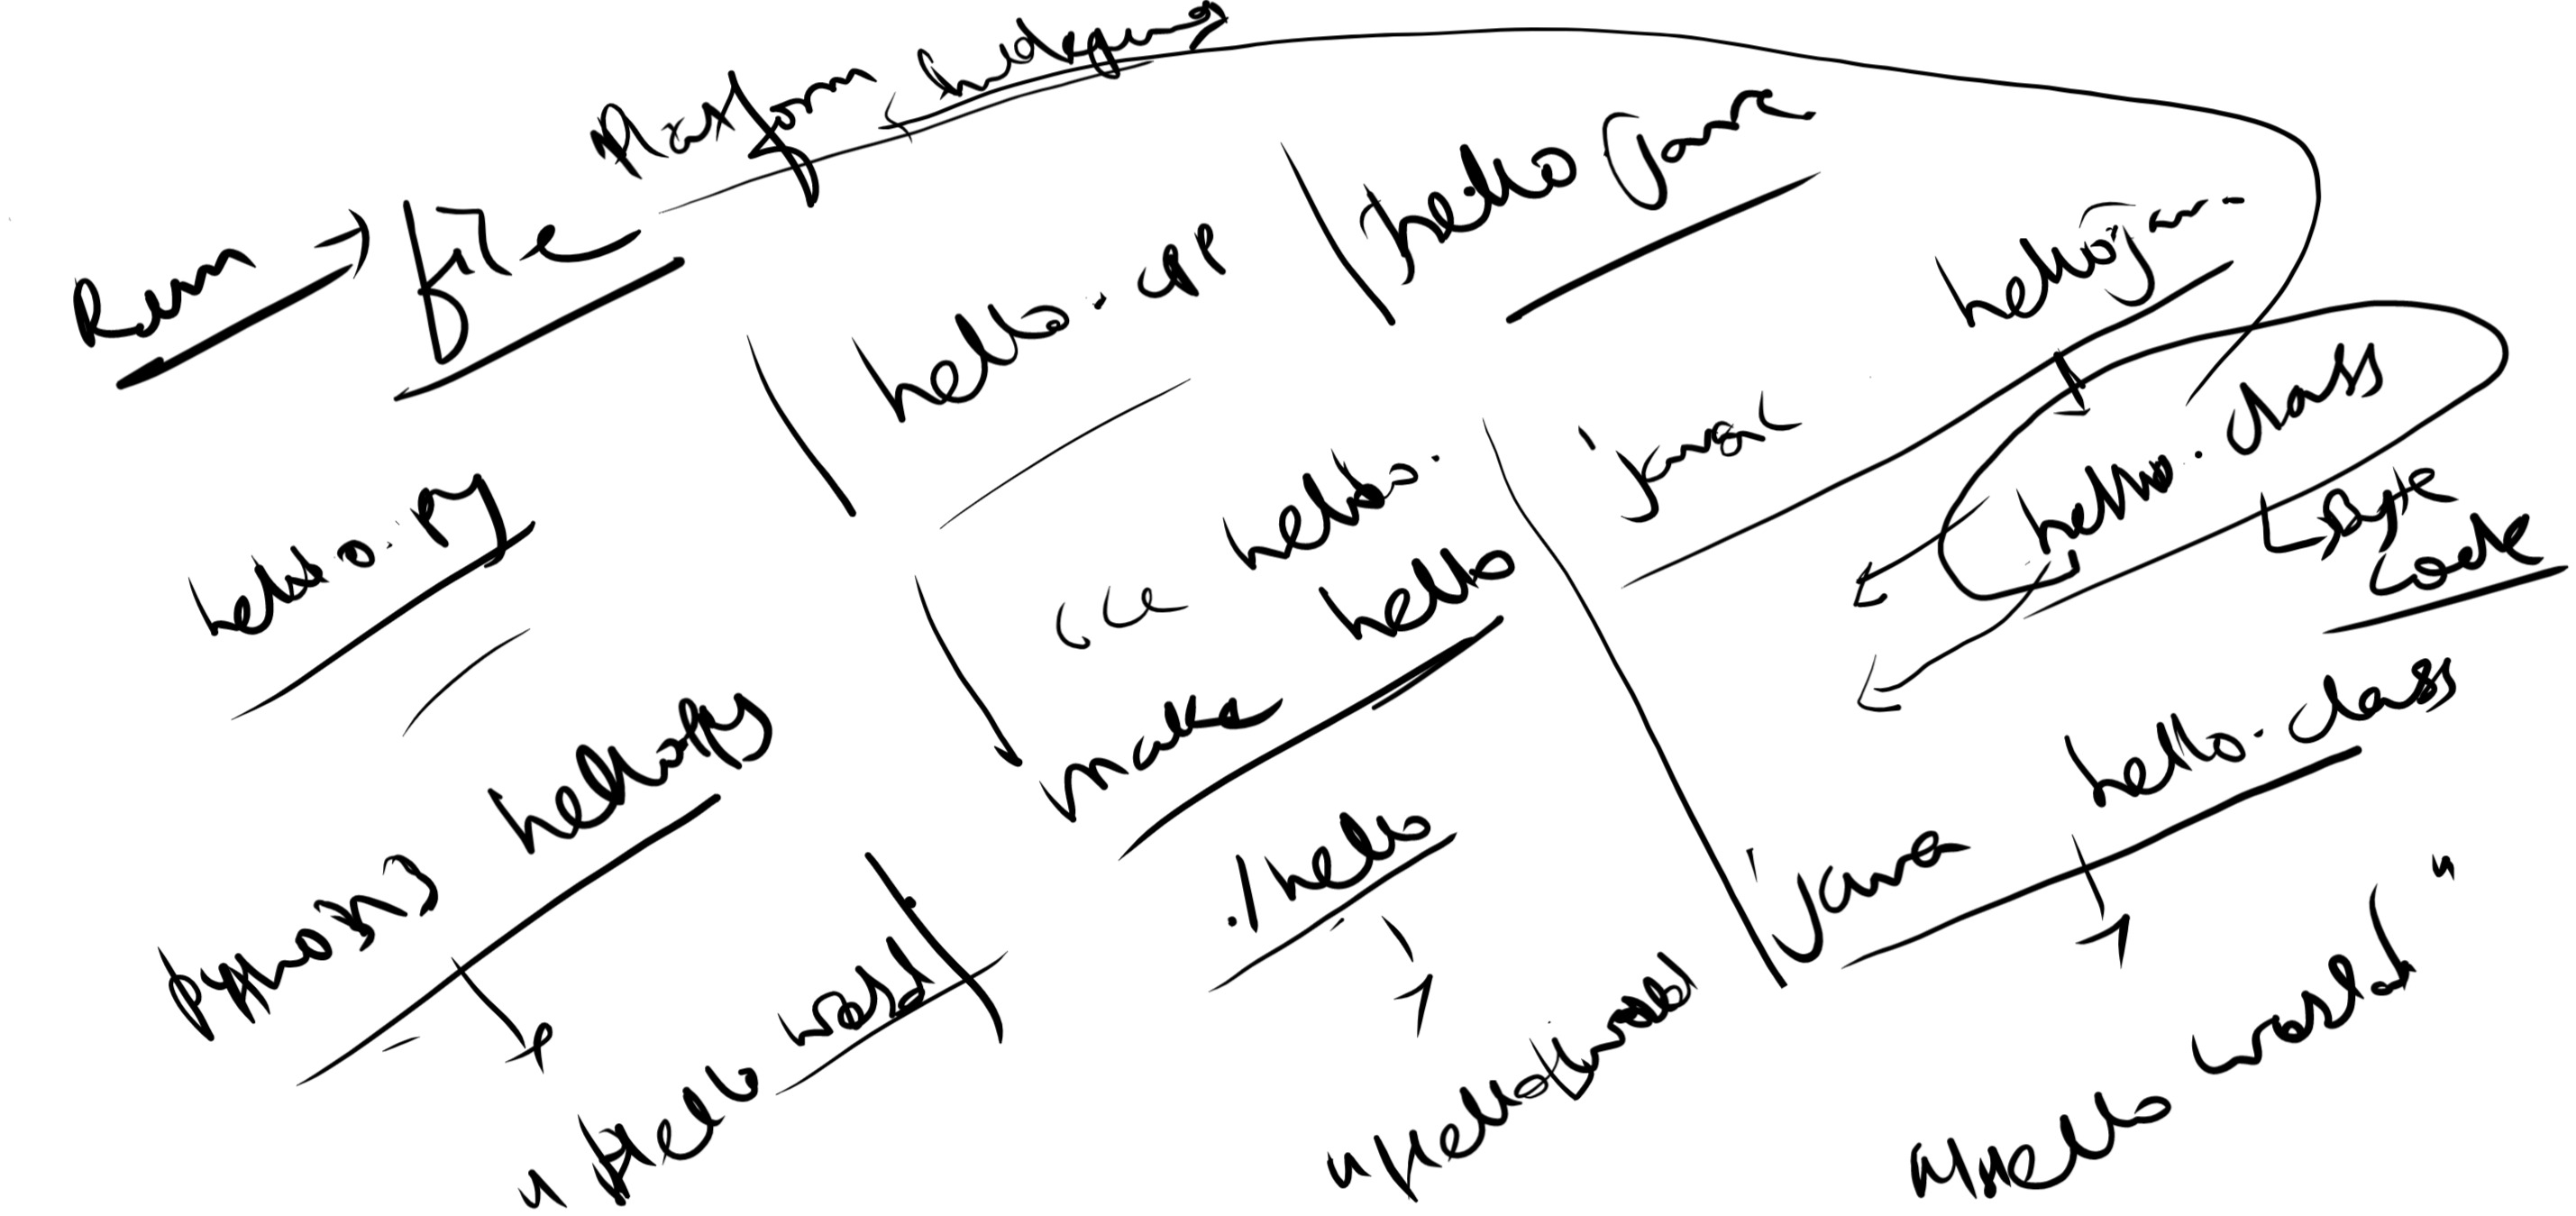 Run → file
Platform Independence
hello.py
python3 hello.py
"Hello world"
hello.cpp
hello.
make hello
./hello
"Hello world"
hello Java
javac hello java
hello.class
Byte
code
java hello.class
"Hello world"